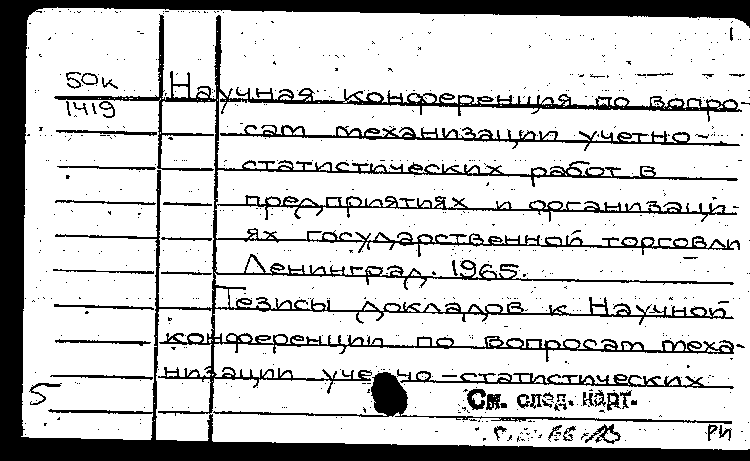 1
50к
1419
Научная конференция по вопро-
сам механизации учетно-
статистических работ в
предприятиях и организаци-
ях государственной торговли
Ленинград. 1965.
Тезисы докладов к Научной
конференции по вопросам меха-
низации учетно-статистических
5
См. след. карт.
РИ